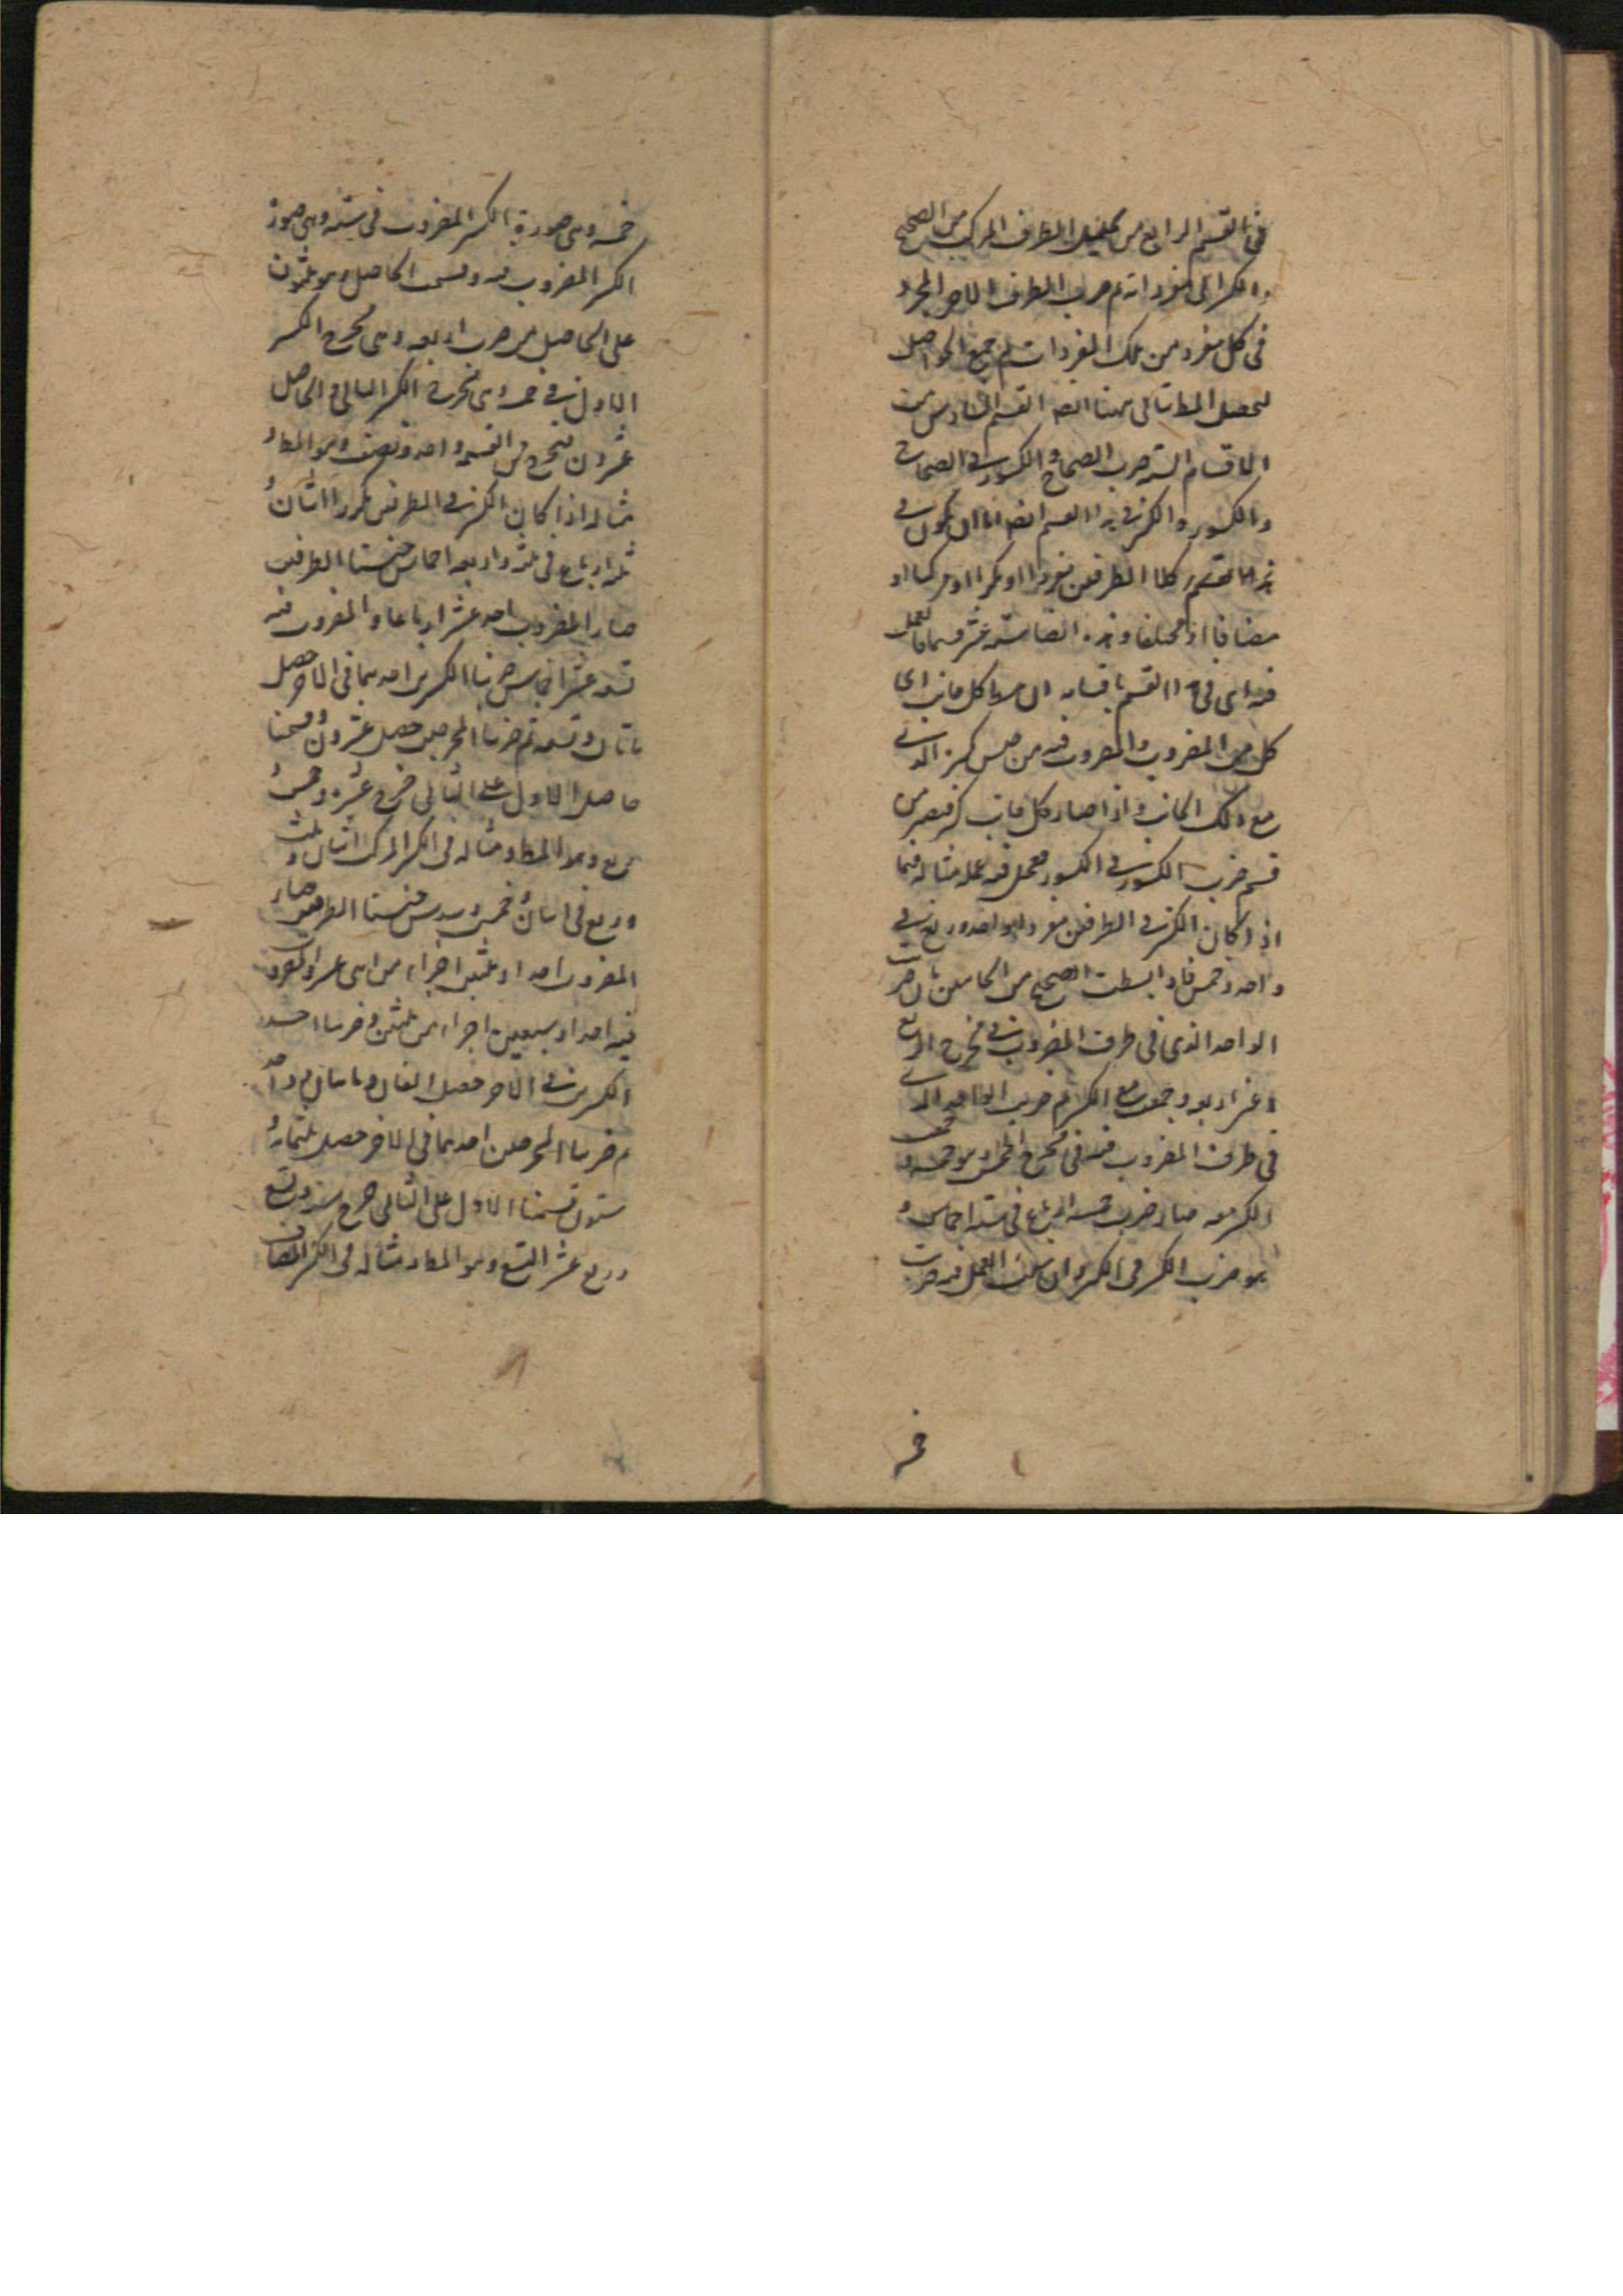 في القسم الرابع من تحليل الطرف المركب من الصحيح
والكسر الى مفرداته ثم ضرب الطرف الاخر المجرد
في كل مفرد من تلك المفردات ثم جمع الحواصل
ليحصل المط تاتى ههنا ايضا القسم السادس من
الاقسام الستة ضرب الصحاح والكسور في الصحاح
والكسور والكسر في هذا القسم ايضا اما ان يكون في
كلا الطرفين مفردا او مكررا او مركبا او
مضافا او مختلفا وهذه ايضا ستة عشر قسما فالعمل
فيه اى في هذا القسم باقسامه ان كل جانب اى
كل من المضروب والمضروب فيه من جنس كسره الذي
مع ذلك الجانب واذا صار كل جانب كسر فيصير من
قسم ضرب الكسور في الكسور فيعمل فيه عمله مثاله فيما
اذا كان الكسر في الطرفين مفردا واحد وربع في
واحد وخمس فاذا بسطت الصحيح من الجانبين بان ضربت
الواحد الذي في طرف المضروب في مخرج الربع
اعني اربعة وجمعت مع الكسر ثم ضربت الواحد الذي
في طرف المضروب فيه في مخرج الخمس وهو خمسة وجمعت
الكسر معه صار ضرب خمسة ارباع في ستة اخماس و
هو ضرب الكسر في الكسر وان شئت العمل فيه ضربت
خمسة وهي صورة الكسر المضروب في ستة وهي صورة
الكسر المضروب فيه وقسمت الحاصل وهو ثلثون
على الحاصل من ضرب اربعة وهي مخرج الكسر
الاول في خمسة وهي مخرج الكسر الثاني والحاصل
عشرون فيخرج من القسمة واحد ونصف وهو المط
مثاله اذا كان الكسر في الطرفين مكررا اثنان و
ثلثة ارباع في ثلثة واربعة اخماس جنسنا الطرفين
صار المضروب احد عشر ارباعا والمضروب فيه
تسعة عشر اخماس ضربنا الكسرين احدهما في الاخر حصل
مائتان وتسعة ثم ضربنا المخرجين حصل عشرون وقسمنا
حاصل الاول على الثاني خرج عشرة وخمس
ربع وهو المط ومثاله في الكسر المركب اثنان وثلث
وربع في اثنان وخمس وسدس جنسنا الطرفين صار
المضروب احدا وثلثين اجزاء من اثنى عشر والمضروب
فيه احدا وسبعين اجزاء من ثلثين وضربنا احد
الكسرين في الاخر فحصل الفان ومائتان وواحد
ثم ضربنا المخرجين احدهما في الاخر حصل ثلثمائة و
ستون قسمنا الاول على الثاني خرج ستة وتسع
وربع عشر التسع وهو المط ومثاله في الكسر المضاف